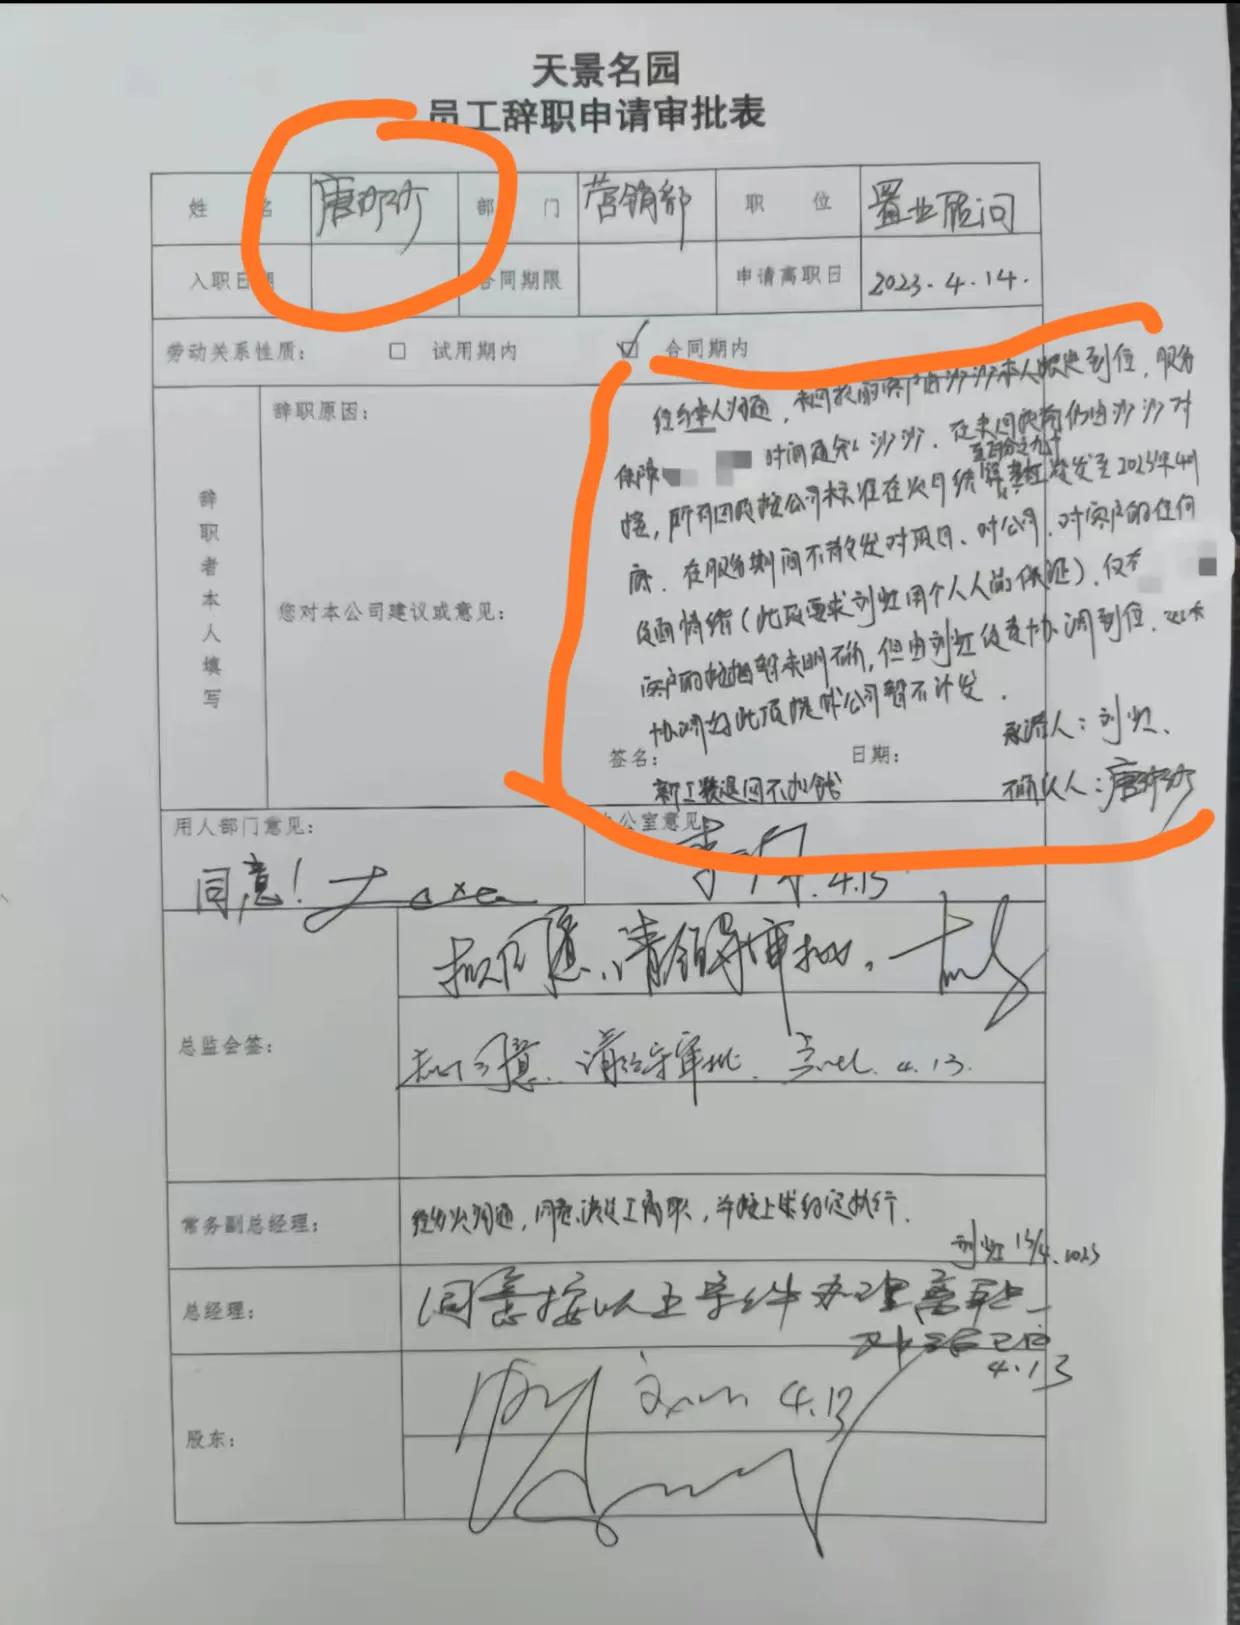 天景名园
员工辞职申请审批表
姓 名 唐沙沙 部 门 营销部 职 位 置业顾问
入职日期 合同期限 申请离职日 2023.4.14.
劳动关系性质: □ 试用期内 ☑ 合同期内
辞职者本人填写
辞职原因:
经与本人沟通,未回款的客户由沙沙本人跟进到位,服务
保障 时间通知沙沙.在未回款前仍由沙沙对
至百分之九十
接,所有回款按公司标准在次月结算 发至2023年4月
底.在服务期间不散发对项目、对公司、对客户的任何
负面情绪(此段要求刘虹用个人人品保证),仅有
客户的 暂未明确,但由刘虹负责协调到位,
协调好此项提成公司暂不计发.
您对本公司建议或意见:
签名: 日期:
承诺人:刘虹.
新工装退回不扣钱
确认人:唐沙沙
用人部门意见:
同意!
办公室意见:
4.13
总监会签:
拟同意,请领导审批.
拟同意.请 审批. 4.13.
常务副总经理:
经多次沟通,同意该员工离职,并按上策约定执行.
刘虹 13/4.2023
总经理:
同意按以上条件办理离职
4.13
股东:
4.13